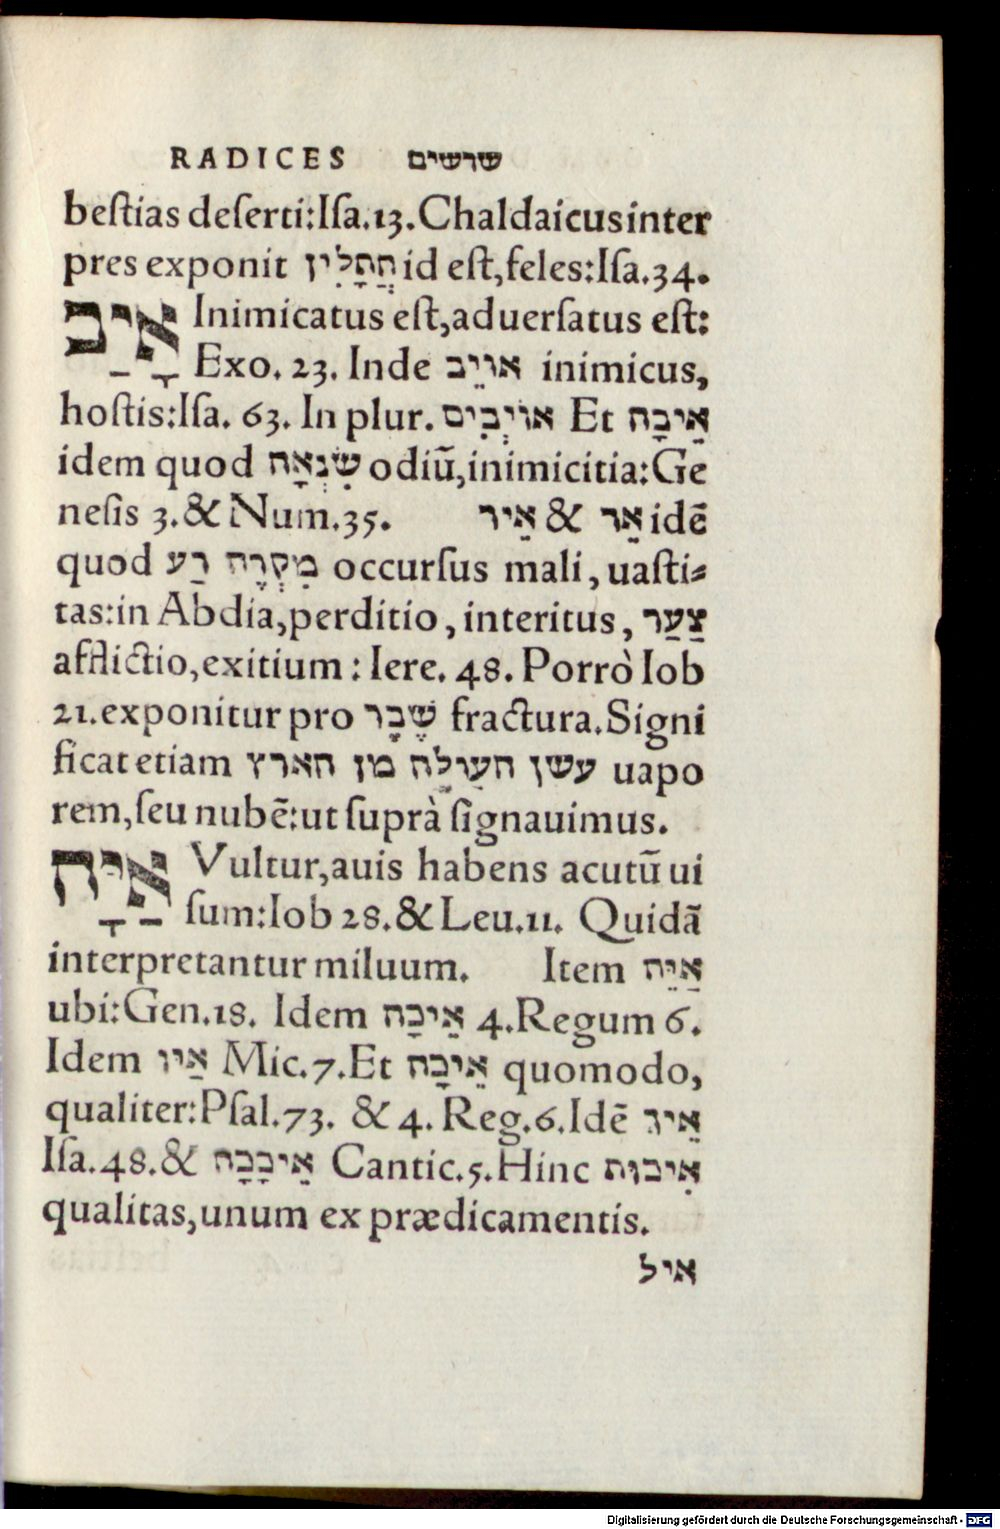 RADICES שרשים
beſtias deſerti:Iſa.13.Chaldaicus inter
pres exponit חֲתָלִין id eſt,feles:Iſa.34.
אָיַב Inimicatus eſt,aduerſatus eſt:
Exo. 23. Inde אוֹיֵב inimicus,
hoſtis:Iſa. 63. In plur. אוֹיְבִים Et אֵיבָה
idem quod שִׂנְאָה odiũ,inimicitia:Ge
neſis 3.& Num.35. אֵיר & אֵר idẽ
quod מִקְרֶה רַע occurſus mali, uaſti⸗
tas:in Abdia,perditio, interitus, צַעַר
afflictio,exitium: Iere. 48. Porrò Iob
21.exponitur pro שֶׁבָר fractura.Signi
ficat etiam עשן העולה מן הארץ uapo
rem,ſeu nubẽ:ut ſuprà ſignauimus.
אַיָה Vultur,auis habens acutũ ui
ſum:Iob 28.& Leu.11. Quidã
interpretantur miluum. Item אַיֵה
ubi:Gen.18. Idem אֵיכָה 4.Regum 6.
Idem אַיו Mic.7.Et אֵיכָה quomodo,
qualiter:Pſal.73. & 4. Reg.6.Idẽ אֵיךְ
Iſa.48.& אֵיכָכָה Cantic.5.Hinc אִיכוּת
qualitas,unum ex prædicamentis.
איל
Digitalisierung gefördert durch die Deutsche Forschungsgemeinschaft - DFG